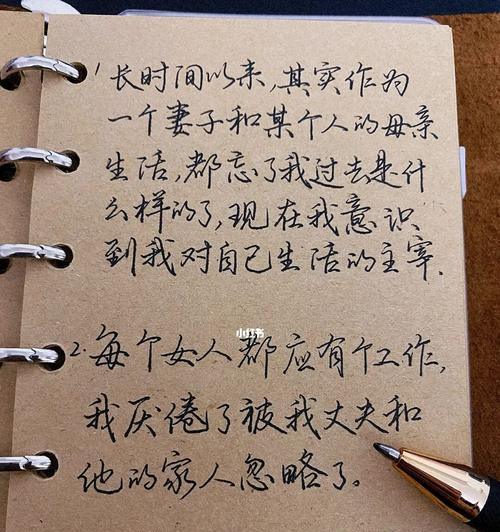 1 长时间以来,其实作为
一个妻子和某个人的母亲
生活,都忘了我过去是什
么样的了,现在我意识
到我对自己生活的主宰.
小红书
2.每个女人都应有个工作,
我厌倦了被我丈夫和
他的家人忽略了。